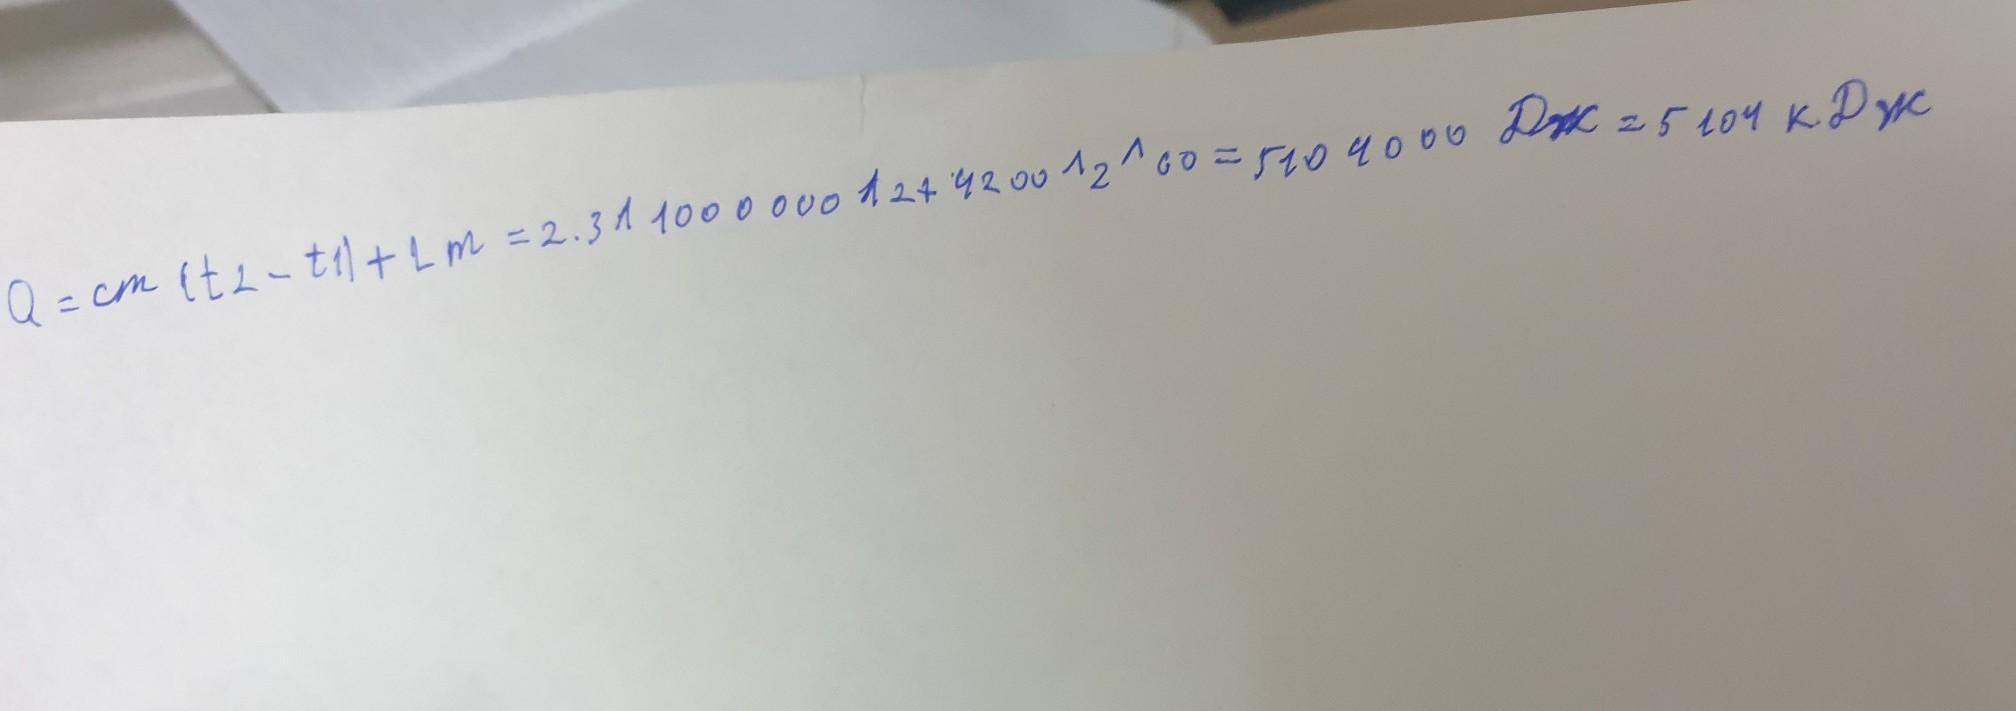 Q = cm (t2 - t1) + Lm = 2.3^1000000^2+4200^2^60 = 5104000 Дж = 5104 кДж